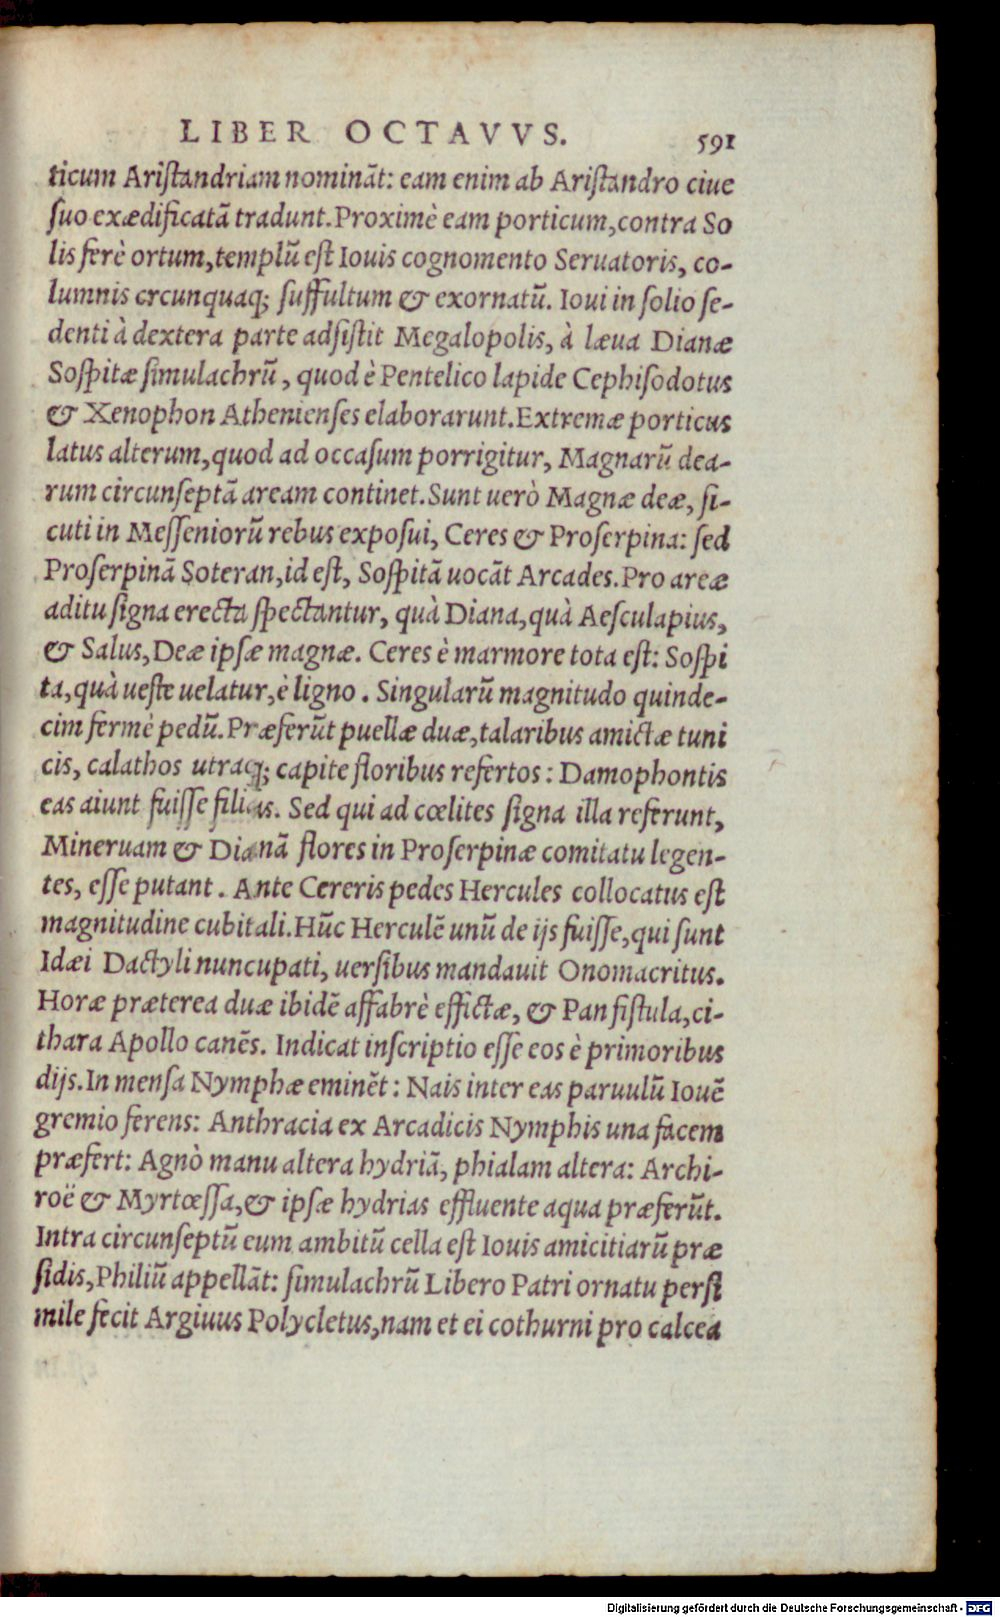 LIBER OCTAVVS. 591
ticum Ariſtandriam nominãt: eam enim ab Ariſtandro ciue
ſuo exædificatã tradunt. Proximè eam porticum, contra So
lis ferè ortum, templũ eſt Iouis cognomento Seruatoris, co-
lumnis crcunquaq; ſuffultum & exornatũ. Ioui in ſolio ſe-
denti à dextera parte adſiſtit Megalopolis, à læua Dianæ
Soſpitæ ſimulachrũ, quod è Pentelico lapide Cephiſodotus
& Xenophon Athenienſes elaborarunt. Extremæ porticus
latus alterum, quod ad occaſum porrigitur, Magnarũ dea-
rum circunſeptã aream continet. Sunt uerò Magnæ deæ, ſi-
cuti in Meſſeniorũ rebus expoſui, Ceres & Proſerpina: ſed
Proſerpinã Soteran, id eſt, Soſpitã uocãt Arcades. Pro areæ
aditu ſigna erecta ſpectantur, quà Diana, quà Aeſculapius,
& Salus, Deæ ipſæ magnæ. Ceres è marmore tota eſt: Soſpi
ta, quà ueſte uelatur, è ligno. Singularũ magnitudo quinde-
cim fermè pedũ. Præferũt puellæ duæ, talaribus amictæ tuni
cis, calathos utraq; capite floribus refertos: Damophontis
eas aiunt fuiſſe filias. Sed qui ad cœlites ſigna illa referunt,
Mineruam & Dianã flores in Proſerpinæ comitatu legen-
tes, eſſe putant. Ante Cereris pedes Hercules collocatus eſt
magnitudine cubitali. Hũc Herculẽ unũ de ijs fuiſſe, qui ſunt
Idæi Dactyli nuncupati, uerſibus mandauit Onomacritus.
Horæ præterea duæ ibidẽ affabrè effictæ, & Pan fiſtula, ci-
thara Apollo canẽs. Indicat inſcriptio eſſe eos è primoribus
dijs. In menſa Nymphæ eminẽt: Nais inter eas paruulũ Iouẽ
gremio ferens: Anthracia ex Arcadicis Nymphis una facem
præfert: Agnò manu altera hydriã, phialam altera: Archi-
roë & Myrtœſſa, & ipſæ hydrias effluente aqua præferũt.
Intra circunſeptũ eum ambitũ cella eſt Iouis amicitiarũ præ
ſidis, Philiũ appellãt: ſimulachrũ Libero Patri ornatu perſi
mile fecit Argiuus Polycletus, nam et ei cothurni pro calcea
Digitalisierung gefördert durch die Deutsche Forschungsgemeinschaft - DFG